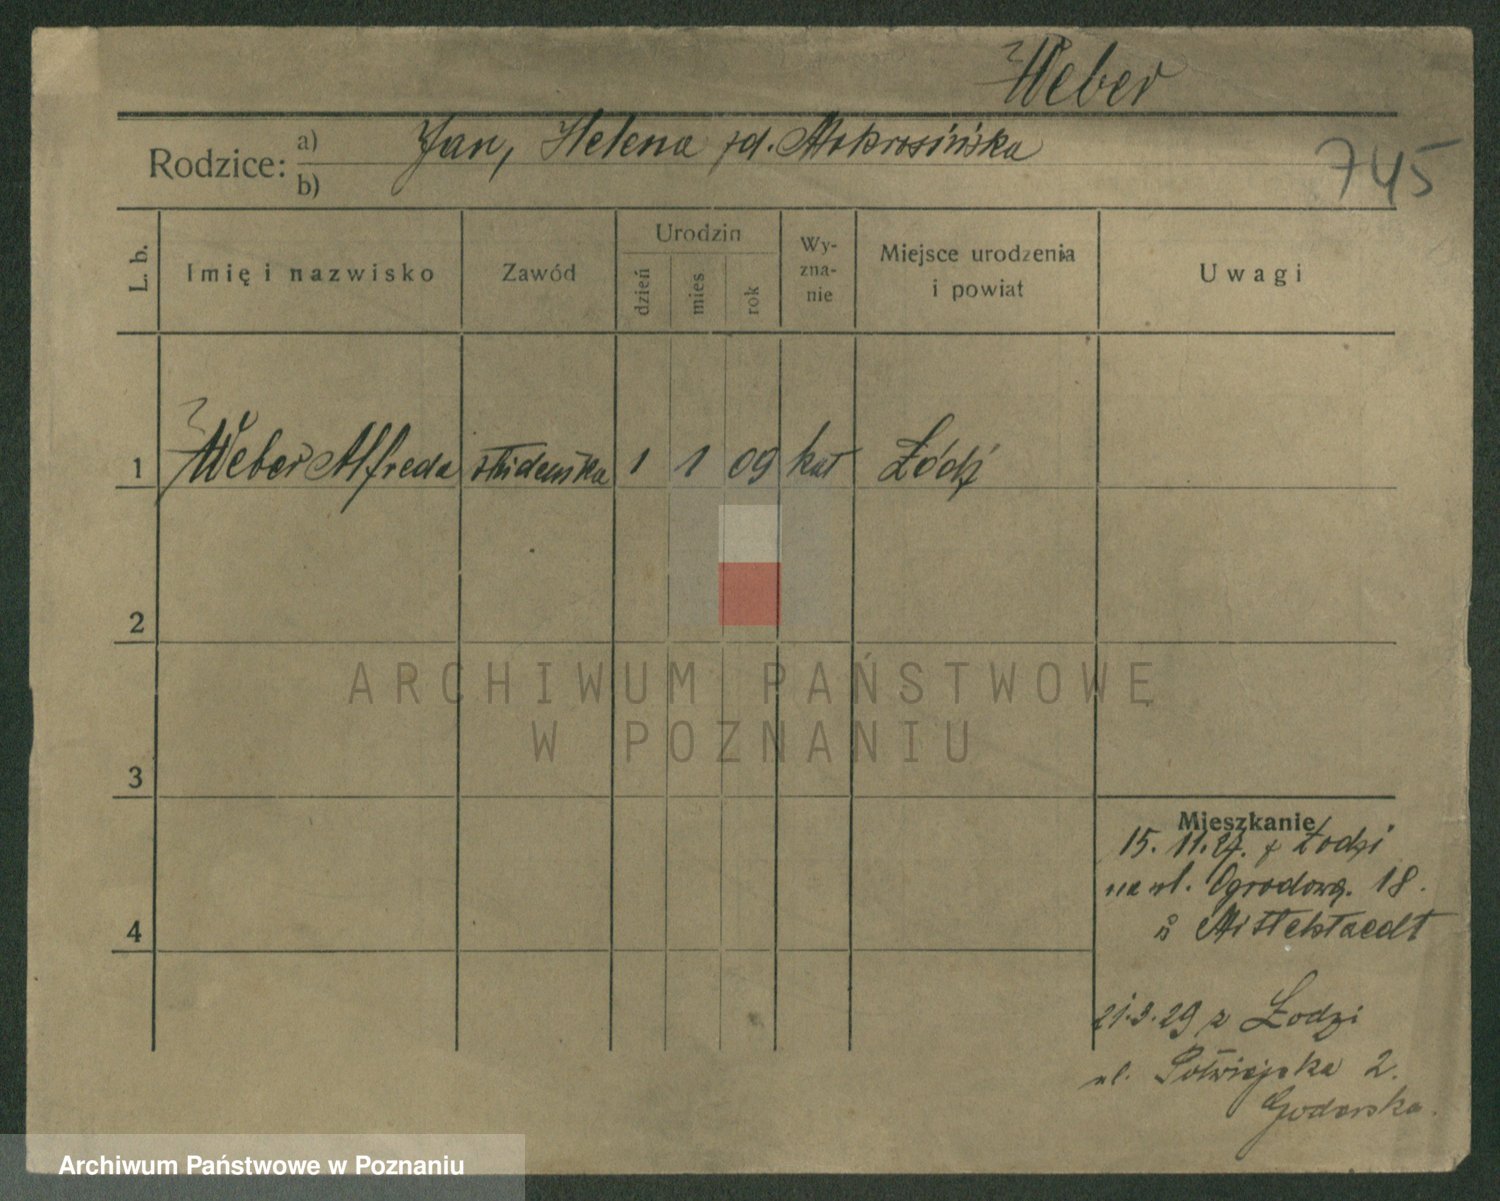 Weber
Rodzice: a) Jan, Helena zd. Mokrosińska
b)
745
L. b. Imię i nazwisko Zawód Urodzin dzień mies rok Wy-zna-nie Miejsce urodzenia i powiat Uwagi
1 Weber Alfreda studentka 1 1 09 kat Łódź
2
3
4
Mieszkanie
15. 11. 27. z Łodzi
na ul. Ogrodową. 18.
Mittelstaedt
21.3.29 z Łodzi
ul. Półwiejska 2.
ARCHIWUM PAŃSTWOWE
W POZNANIU
Archiwum Państwowe w Poznaniu